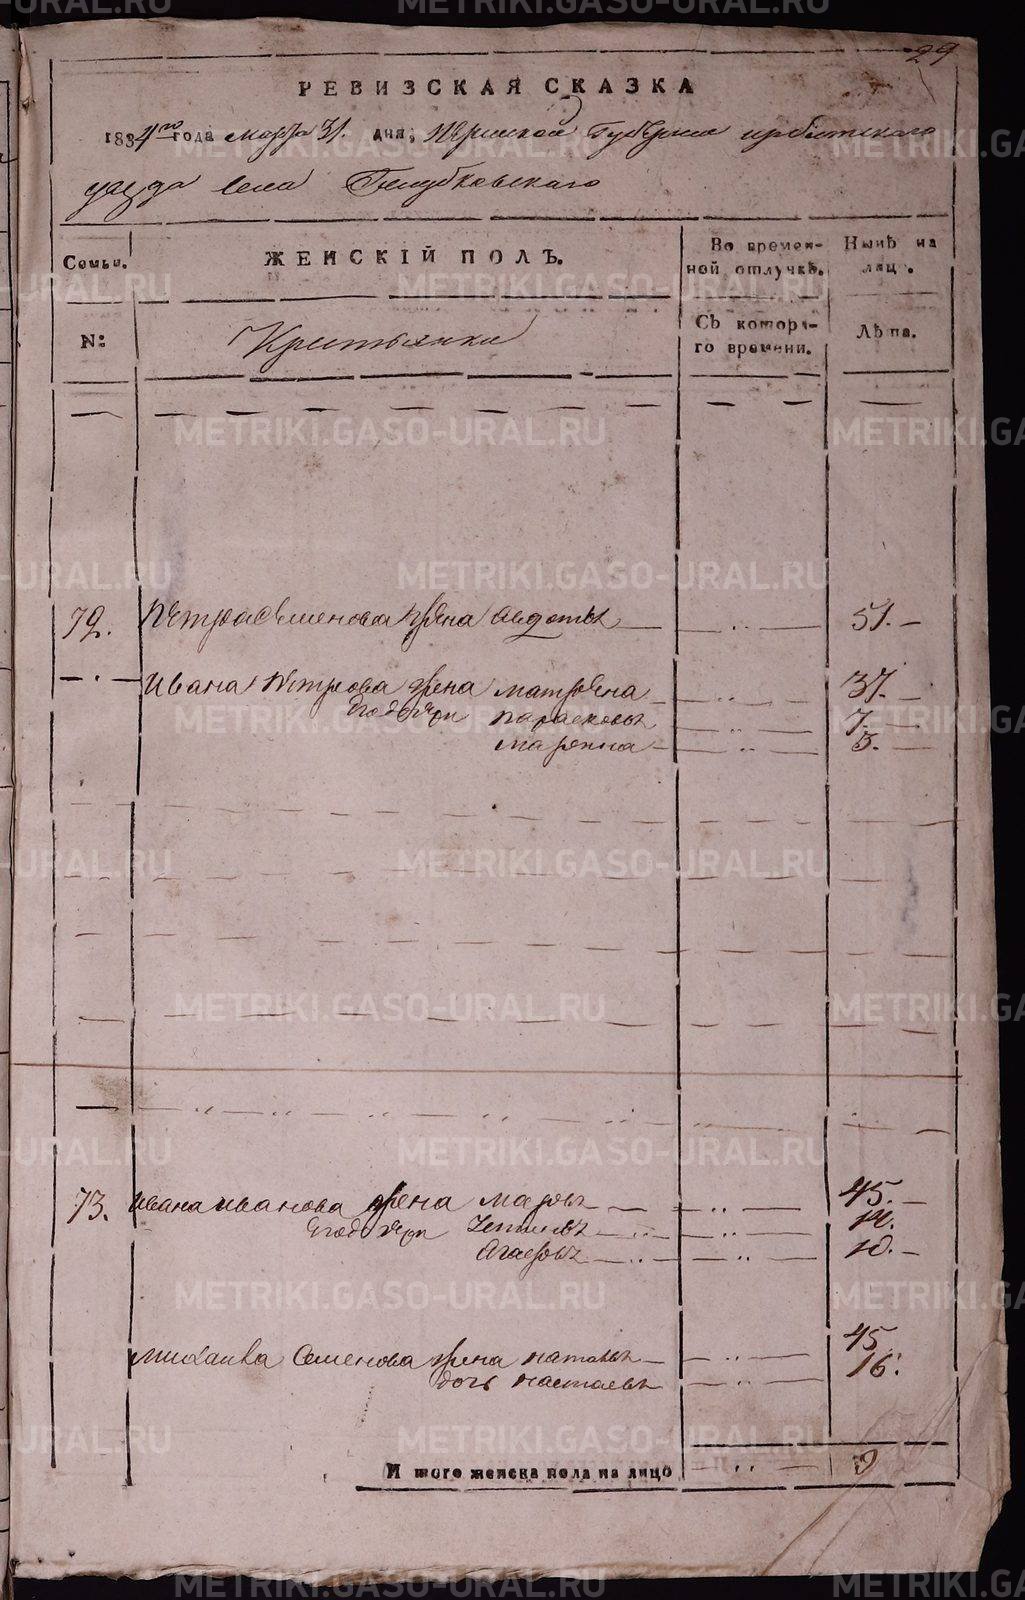 29
РЕВИЗСКАЯ СКАЗКА
1834го года марта 31. дня; Пермской Губернии ирбитского
уезда села Голубковского
Семьи. ЖЕНСКІЙ ПОЛЪ. Во времен-ной отлучкѣ. Нынѣ на лицо.
N: Крестьянки Съ котора-го времени. Лѣта.
72. Петра Семенова жена авдотья 51.
Ивана Петрова жена матрена 37.
Его дочери парасковья 7.
марьяна 5.
73. ивана иванова жена марья 45.
Его дочери 14.
Агафья 10.
михаила Семенова жена наталья 45
дочь настасья 16.
И того женска пола на лицо 9
METRIKI.GASO-URAL.RU